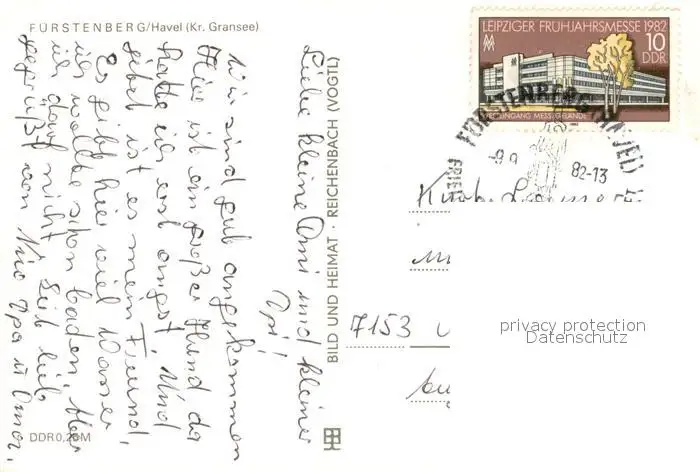 FÜRSTENBERG/Havel (Kr. Gransee)
Liebe kleine Omi und kleiner
Opi!
Wir sind gut angekommen
Hier ist ein großer Hund da
hatte ich erst angst. Und
jetzt ist es mein Freund,
Es gibt hier viel Wasser
ich wollte schon baden aber
ich darf nicht. Seid lieb
gegrüßt von Opa u Oma.
DDR 0,20 M
BILD UND HEIMAT · REICHENBACH (VOGTL)
LEIPZIGER FRÜHJAHRSMESSE 1982
10
DDR
MESSEGELÄNDE
FÜRSTENBERG (HAVEL)
82-13
7153
privacy protection
Datenschutz